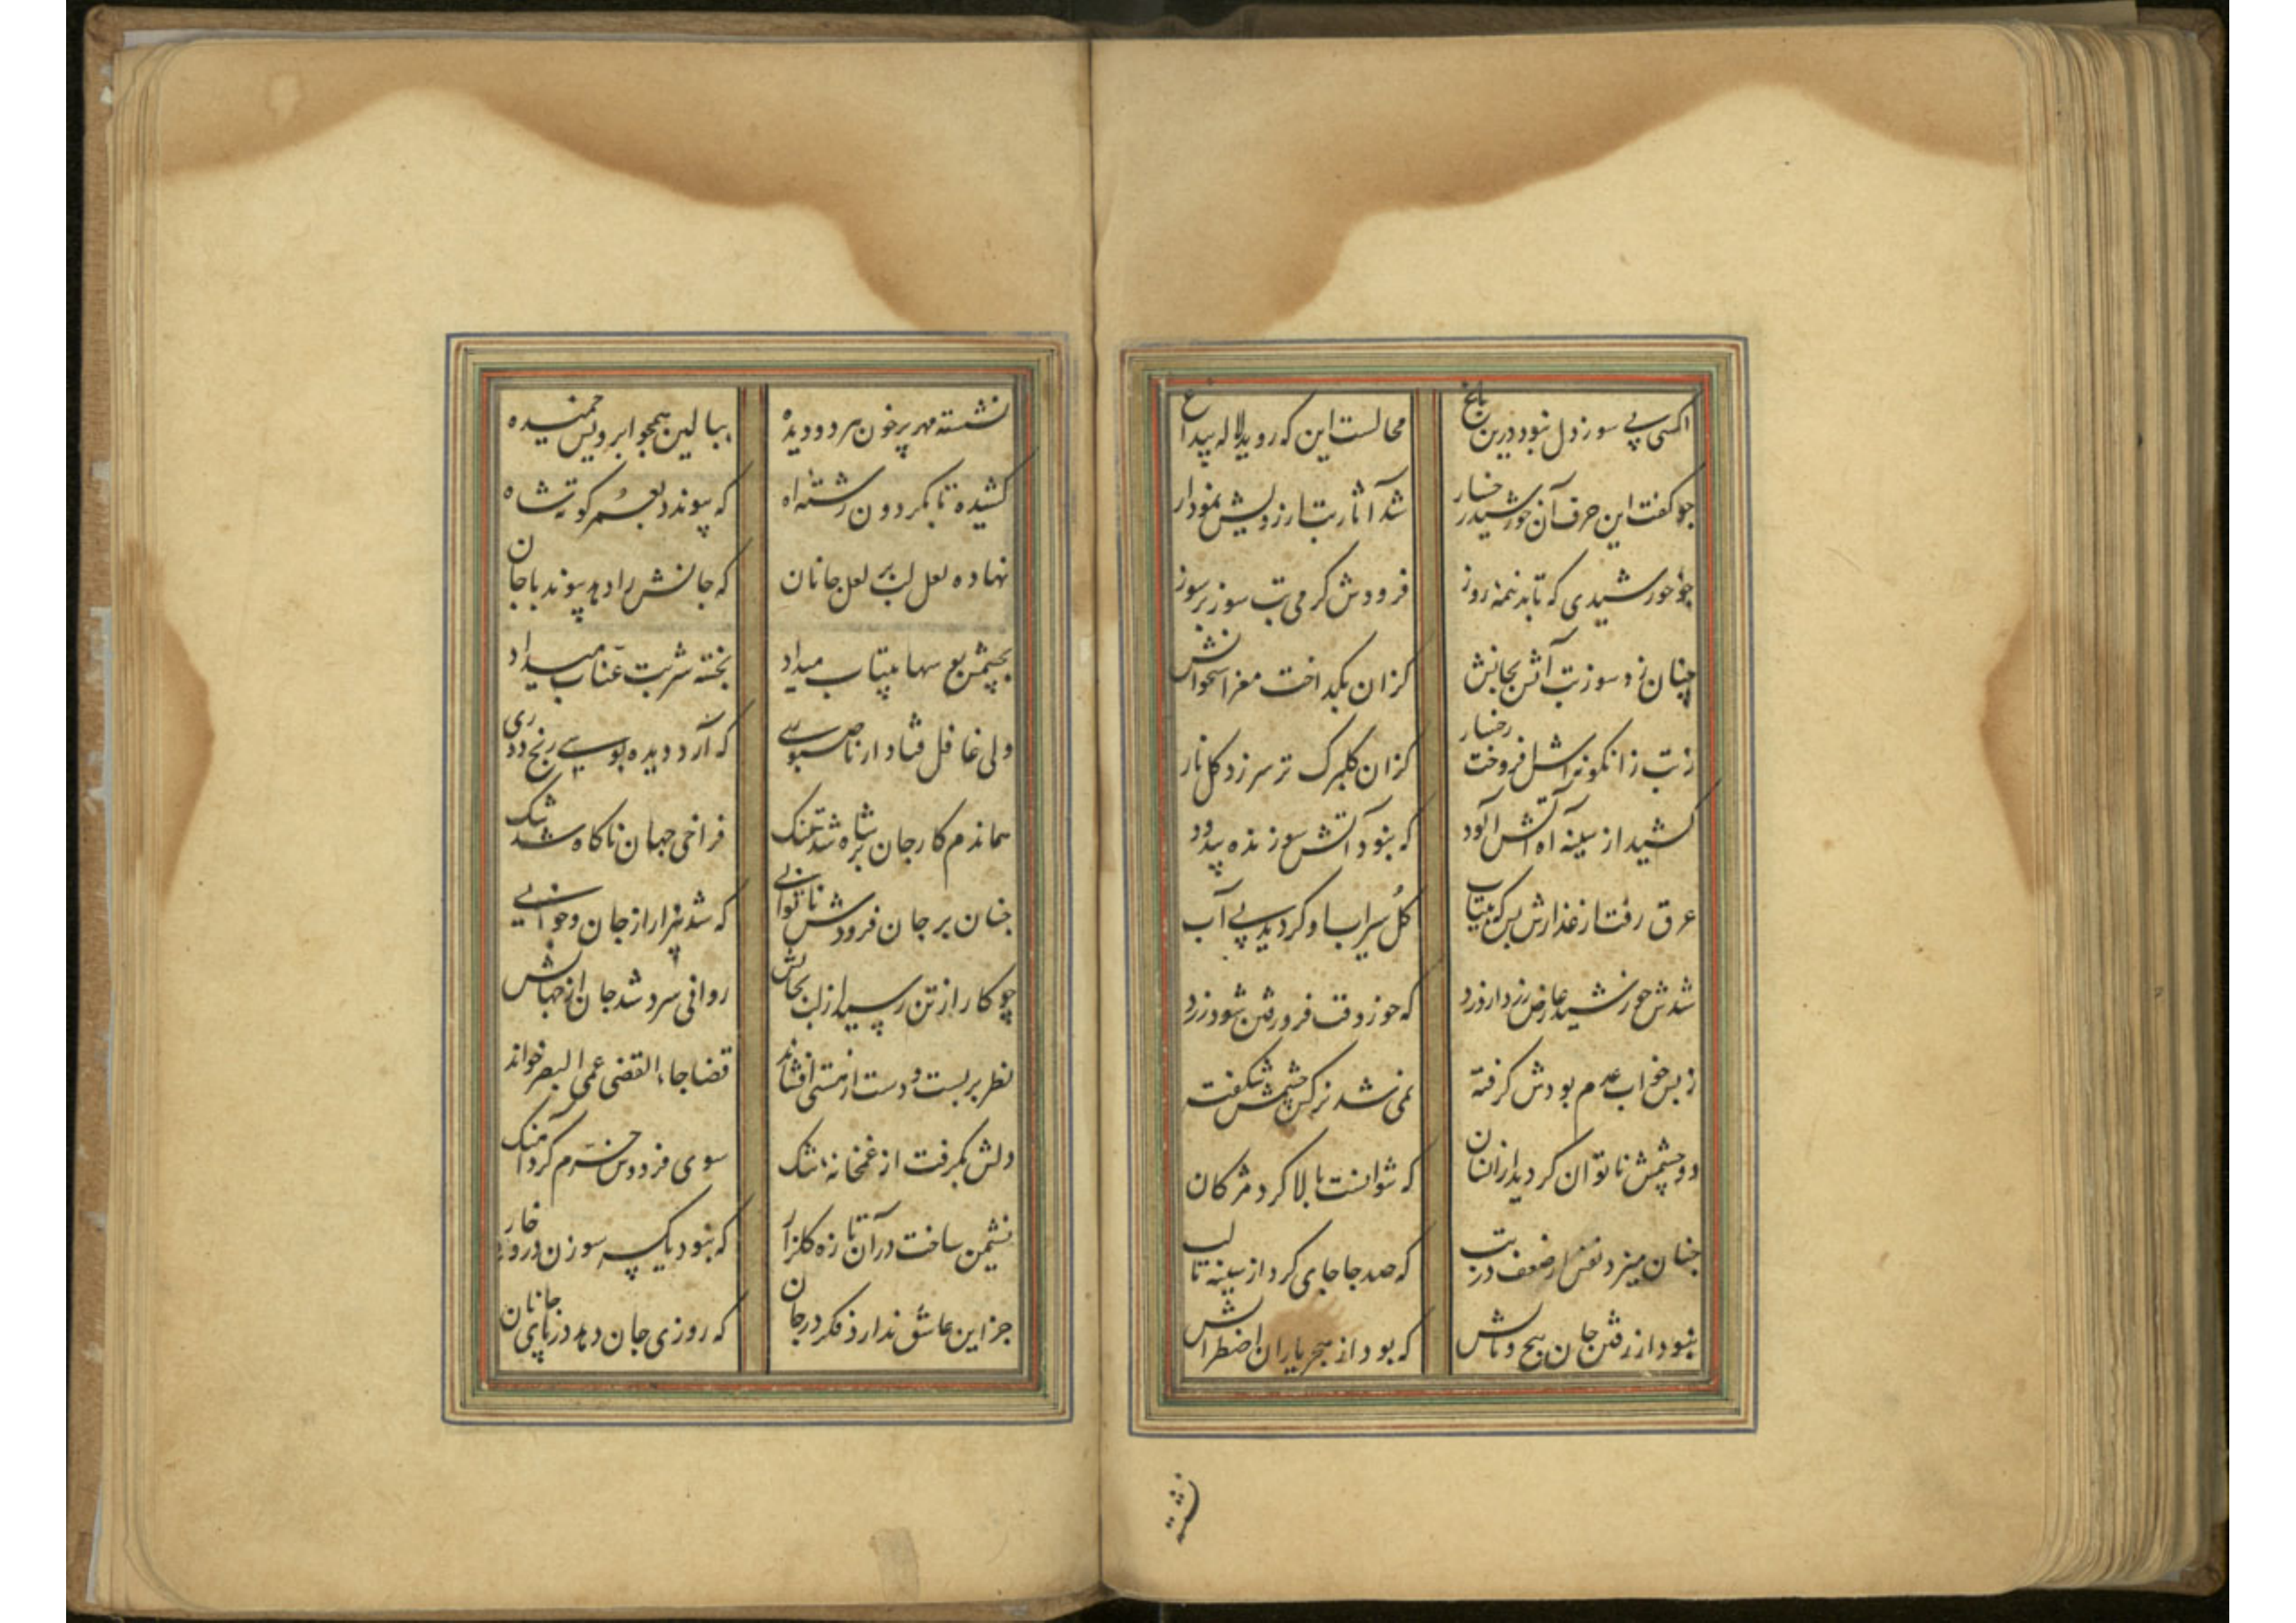 اکسی پی سوز دل نبود درین باغ محالست این که روید لاله بیداغ
چو گفت این حرف آن خورشید رخسار شد آثار تب از رویش نمودار
چو خورشیدی که تابد نیمه روز فزودش گرمی تب سوز بر سوز
چنان زد سوز تب آتش بجانش کزان بگداخت مغز استخوانش
ز تب زانگونه اش افروخت رخسار کزان گلبرک تر سر زد گل نار
کشید از سینه آه آتش آلود که نبود آتش سوزنده بیدود
عرق رفت از عذارش بس که بیتاب گل سیراب او گردید بی آب
شدش خورشید عارض زرد از درد که خور وقت فرو رفتن شود زرد
ز بس خواب عدم بودش گرفته نمی شد نرکس چشمش شکفته
دو چشمش ناتوان گردید از انسان که نتوانست بالا کرد مژکان
چنان میزد نفس از ضعف در تب که صد جا جای کرد از سینه تا لب
نبود از رفتن جان هیچ تابش که بود از هجر یاران اضطرابش
نشسته
نشسته مهر پرخون هر دو دیده ببالین همچو ابرویش خمیده
کشیده تا بکردون رشته آه که پیوندد بعمر کوته شاه
نهاده لعل لب بر لعل جانان که جانش را دهد پیوند با جان
بچشمش بیتاب میداد بخسته شربت عناب میداد
ولی غافل فتاد از ناصبوری که آرد دیده بوسی رنج دوری
هماندم کار جان بر شاه شد تنک فراخی جهان ناکاه شد تنک
چنان بر جان فزودش ناتوانی که شد بیزار از جان و جوانی
چو کار از تن رسید از لب بجانش روانی سرد شد جان از جهانش
نظر بر بست و دست از هستی افشاند قضا جاء القضی عمی البصر خواند
دلش بگرفت از غمخانه تنک سوی فردوس خرم کرد آهنک
نشیمن ساخت در آن تازه گلزار که نبود یک سر سوزن درو خار
جز این عاشق ندارد فکر در جان که روزی جان دهد در پای جانان